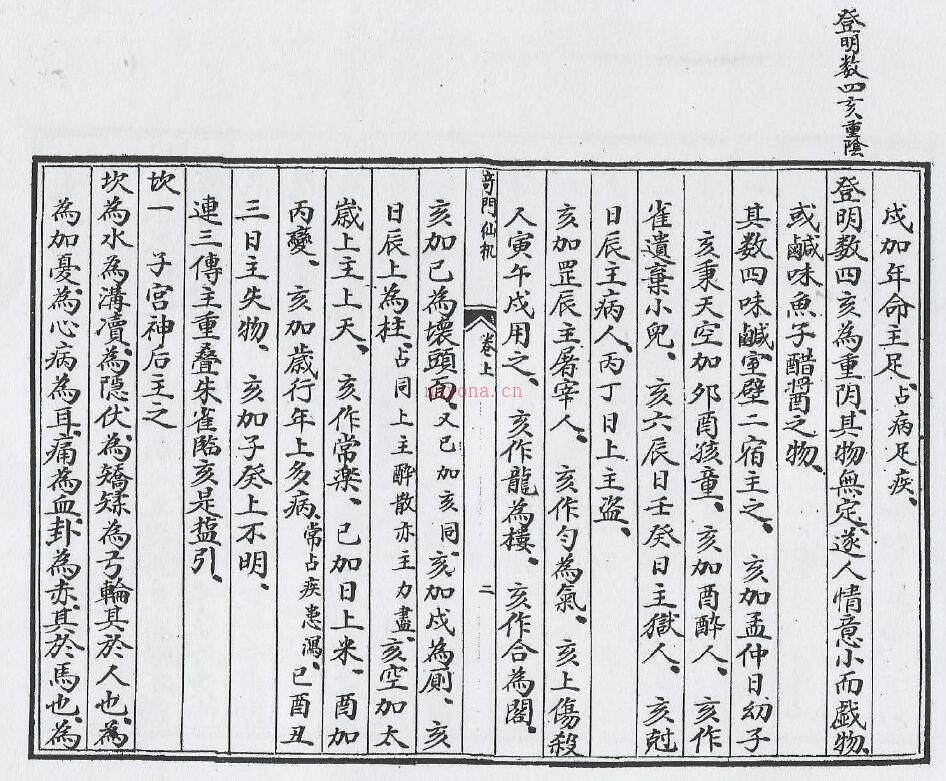 登明数四亥重陰
戍加年命主足、占病足疾、
登明数四亥為重阴、其物無定、遂人情意小而戯物、
或鹹味魚子醋醬之物、
其数四味鹹室壁二宿主之、 亥加孟仲日幼子
亥乘天空加夘酉孩童、 亥加酉醉人、 亥作
雀遺棄小兒、 亥六辰日壬癸日主獄人、 亥尅
日辰主病人、丙丁日上主盗、
亥加罡辰主屠宰人、 亥作勾為氣、 亥上傷殺
人寅午戍用之、 亥作龍為樓、 亥作合為閣、
奇門仙机 卷上 二
亥加巳為壞頭面、又巳加亥同、亥加戍為厠、 亥
日辰上為柱、占同上主醉散亦主力盡、亥空加太
歳上主上天、 亥作常樂、 巳加日上米、 酉加
丙變、 亥加歳行年上多病、常占疾患瀉、巳酉丑
三日主失物、 亥加子癸上不明、
連三傳主重叠朱雀臨亥是盐引、
坎一 子宮神后主之
坎為水為溝凟為隐伏為矯鍒為弓輪其於人也、為
為加憂為心病為耳痛為血卦為赤、其於馬也、為
nayona.cn